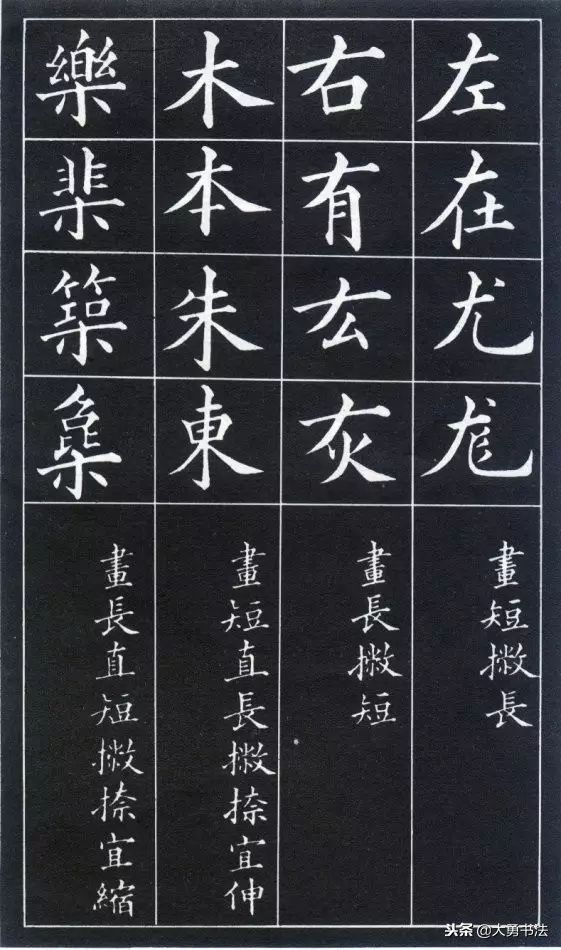 左在尤尨
畫短撇長
右有厷灰
畫長撇短
木本朱東
畫短直長撇捺宜伸
樂棐築
畫長直短撇捺宜縮
头条@大勇书法